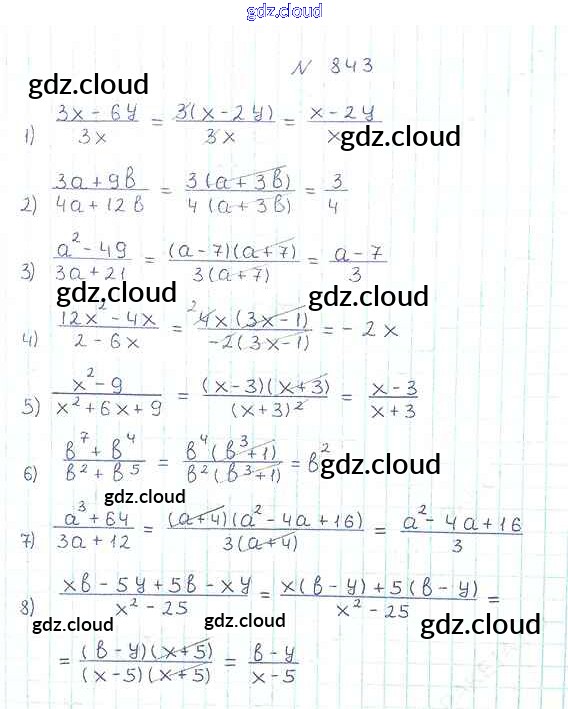 gdz.cloud
N 843
gdz.cloud
1) (3x - 6y)/(3x) = (3(x - 2y))/(3x) = (x - 2y)/x
gdz.cloud
2) (3a + 9b)/(4a + 12b) = (3(a + 3b))/(4(a + 3b)) = 3/4
3) (a² - 49)/(3a + 21) = ((a - 7)(a + 7))/(3(a + 7)) = (a - 7)/3
gdz.cloud gdz.cloud
4) (12x² - 4x)/(2 - 6x) = ²(4x(3x - 1))/(-2(3x - 1)) = - 2x
5) (x² - 9)/(x² + 6x + 9) = ((x - 3)(x + 3))/((x + 3)²) = (x - 3)/(x + 3)
6) (b⁷ + b⁴)/(b² + b⁵) = (b⁴(b³ + 1))/(b²(b³ + 1)) = b²
gdz.cloud
gdz.cloud
7) (a³ + 64)/(3a + 12) = ((a + 4)(a² - 4a + 16))/(3(a + 4)) = (a² - 4a + 16)/3
gdz.cloud
8) (xb - 5y + 5b - xy)/(x² - 25) = (x(b - y) + 5(b - y))/(x² - 25) =
gdz.cloud gdz.cloud gdz.cloud
= ((b - y)(x + 5))/((x - 5)(x + 5)) = (b - y)/(x - 5)